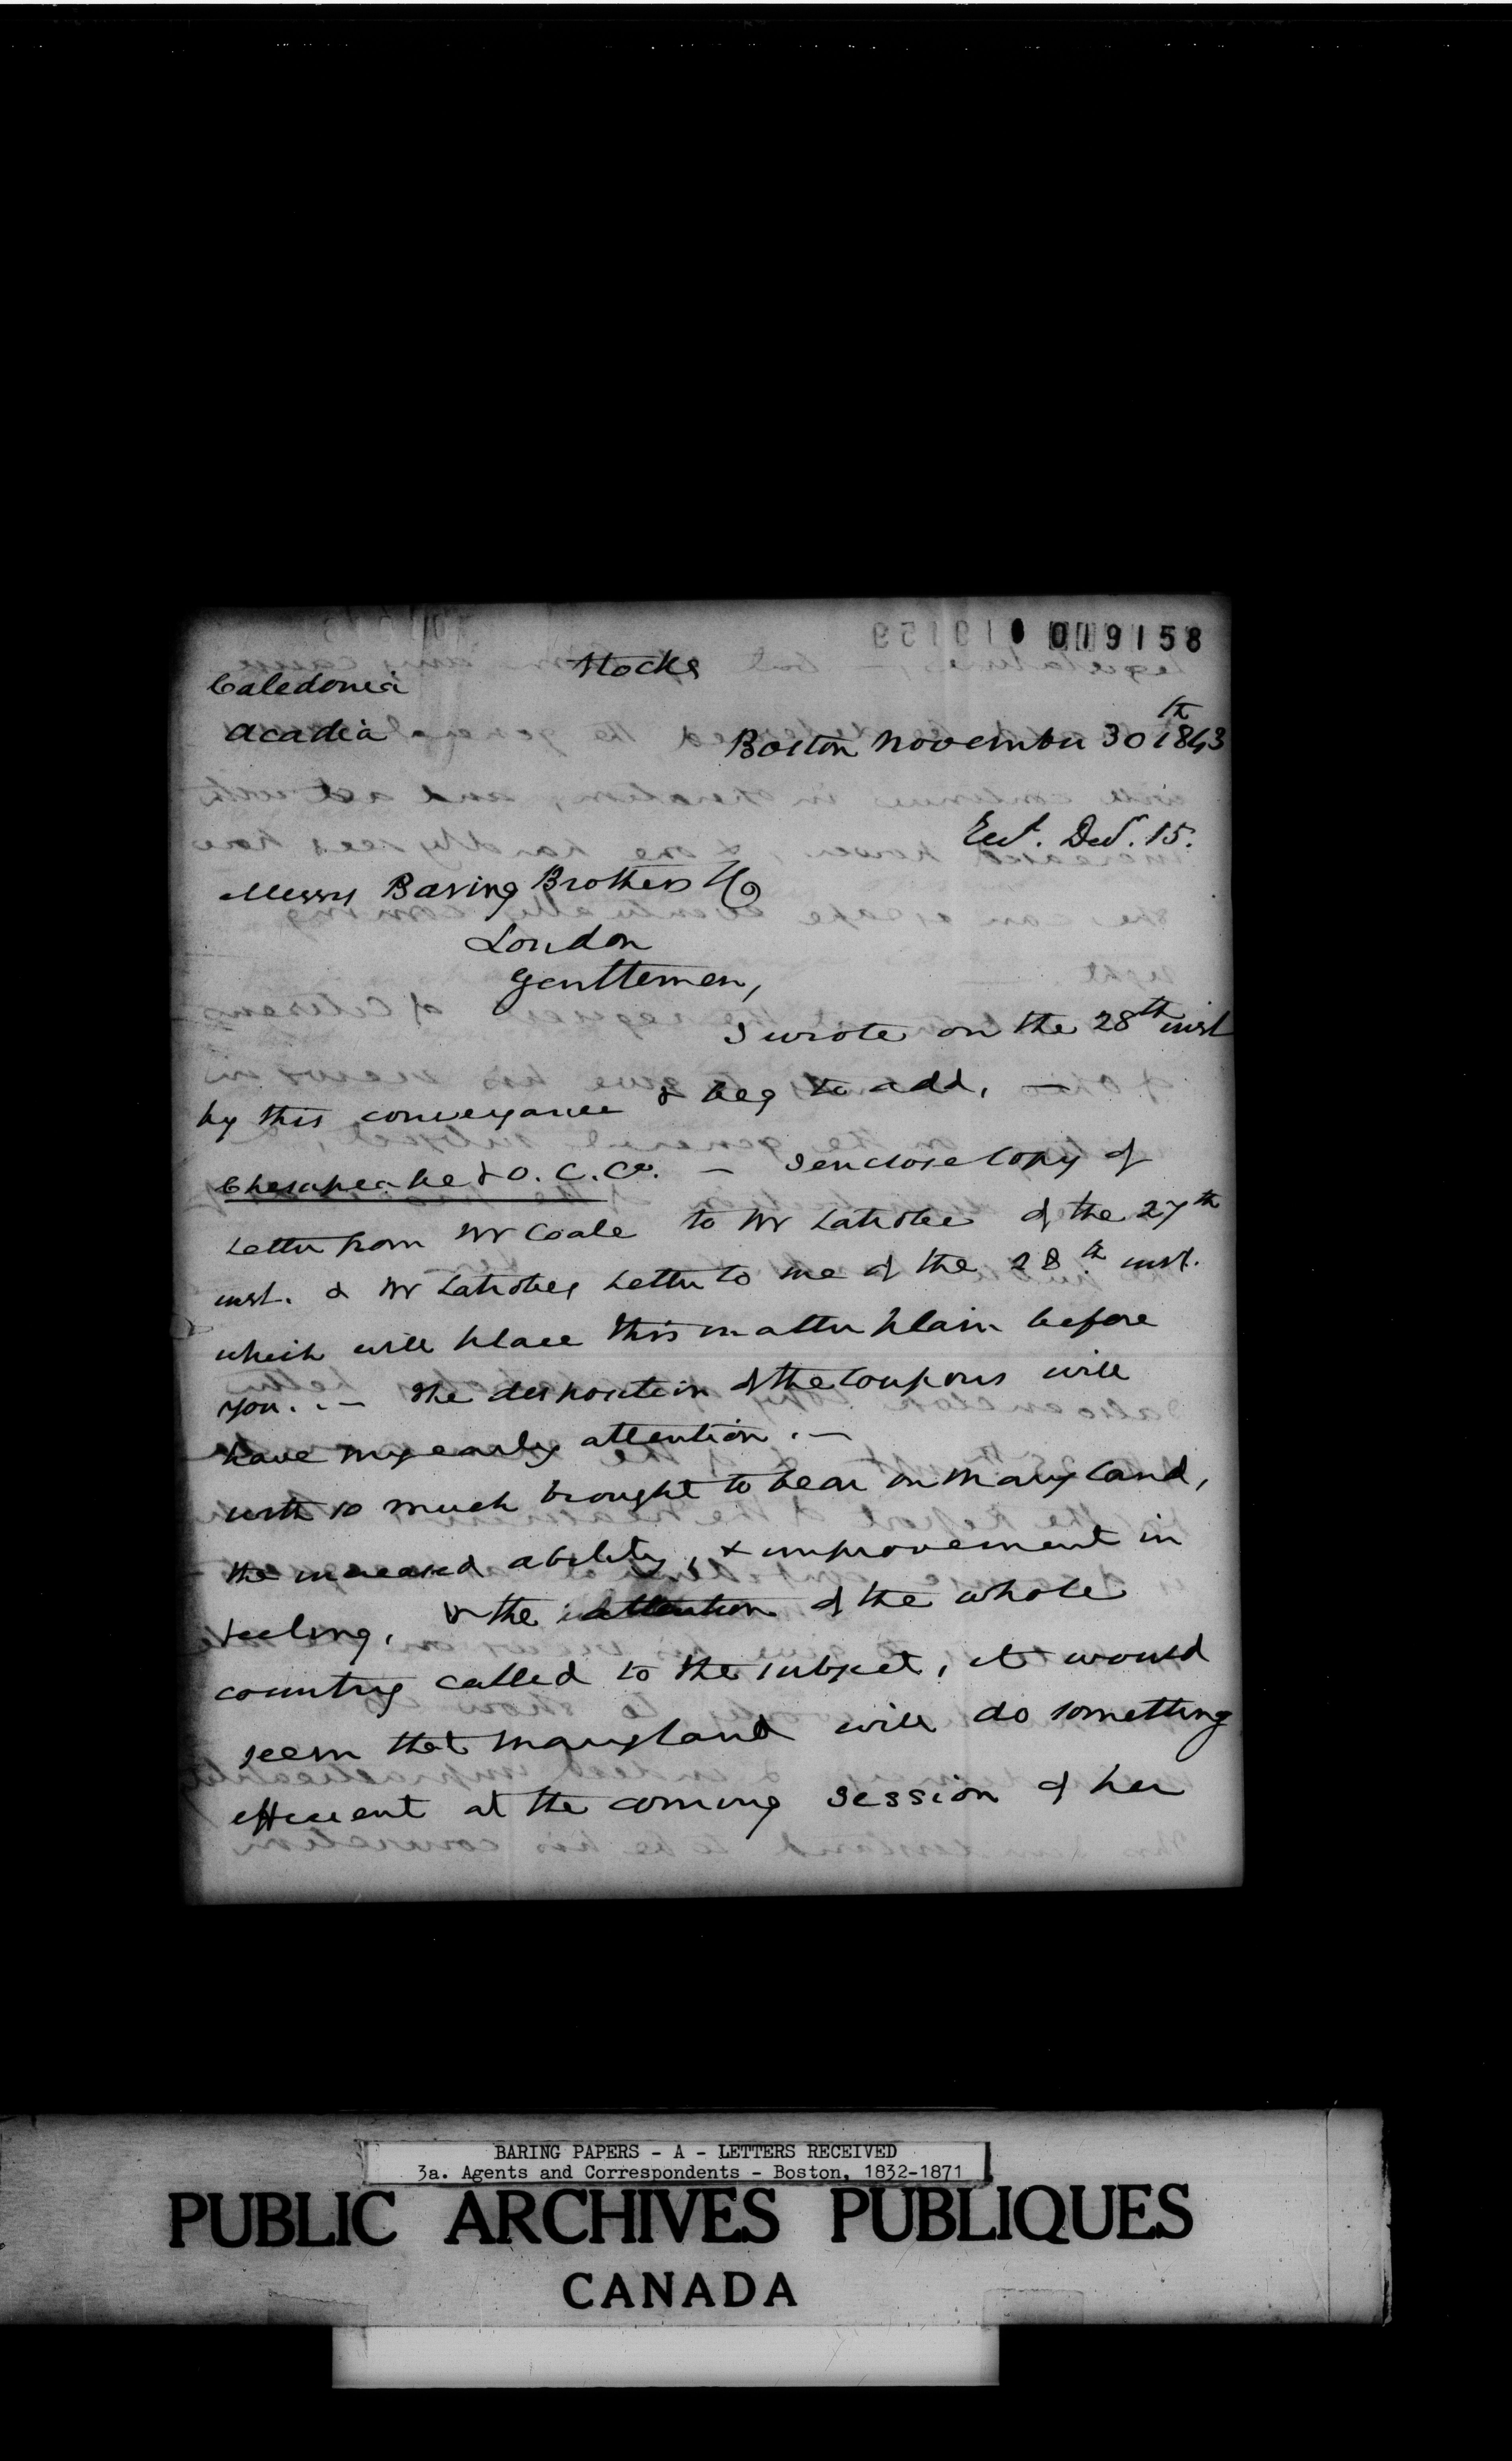 019158
Stocks
Caledonia
Acadia
Boston November 30th 1843
Recd. Decr. 15.
Messrs Baring Brothers & Co
London
Gentlemen,
I wrote on the 28th inst
by this conveyance & beg to add. —
Chesapeake & O. C. Co. — I enclose Copy of
Letter from Mr Coale to Mr Latrobe of the 27th
inst. & Mr Latrobes Letter to me of the 28th inst.
which will place this matter plain before
you. — The disposition of the Coupons will
have my early attention. —
With so much brought to bear on Maryland,
the increased ability, & improvement in
feeling, & the attention of the whole
country called to the subject, it would
seem that Maryland will do something
efficient at the coming session of her
BARING PAPERS - A - LETTERS RECEIVED
3a. Agents and Correspondents - Boston, 1832-1871
PUBLIC ARCHIVES PUBLIQUES
CANADA